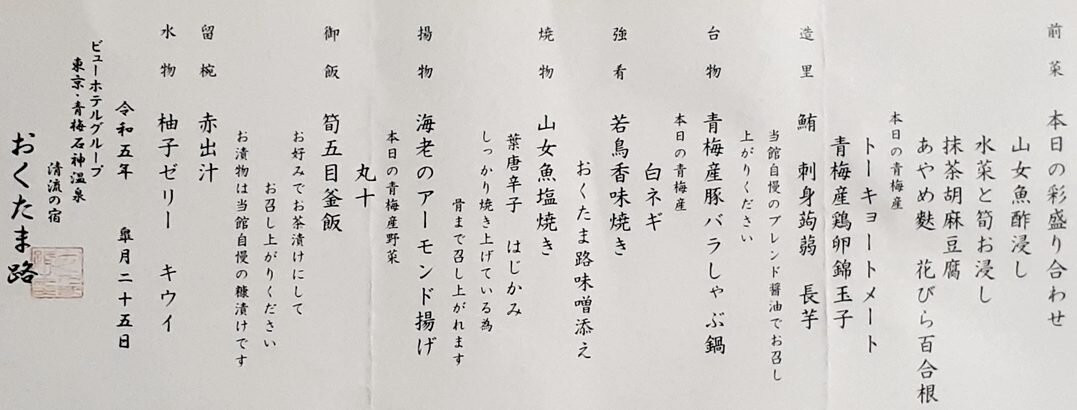 前菜 本日の彩盛り合わせ
山女魚酢浸し
水菜と筍お浸し
抹茶胡麻豆腐
あやめ麩 花びら百合根
本日の青梅産
トーキョートメート
青梅産鶏卵錦玉子
造里 鮪 刺身蒟蒻 長芋
当館自慢のブレンド醤油でお召し
上がりください
台物 青梅産豚バラしゃぶ鍋
本日の青梅産
白ネギ
強肴 若鳥香味焼き
おくたま路味噌添え
焼物 山女魚塩焼き
葉唐辛子 はじかみ
しっかり焼き上げている為
骨まで召し上がれます
揚物 海老のアーモンド揚げ
本日の青梅産野菜
丸十
御飯 筍五目釜飯
お好みでお茶漬けにして
お召し上がりください
お漬物は当館自慢の糠漬けです
留椀 赤出汁
水物 柚子ゼリー キウイ
令和五年 皐月二十五日
ビューホテルグループ
東京・青梅石神温泉
清流の宿
おくたま路